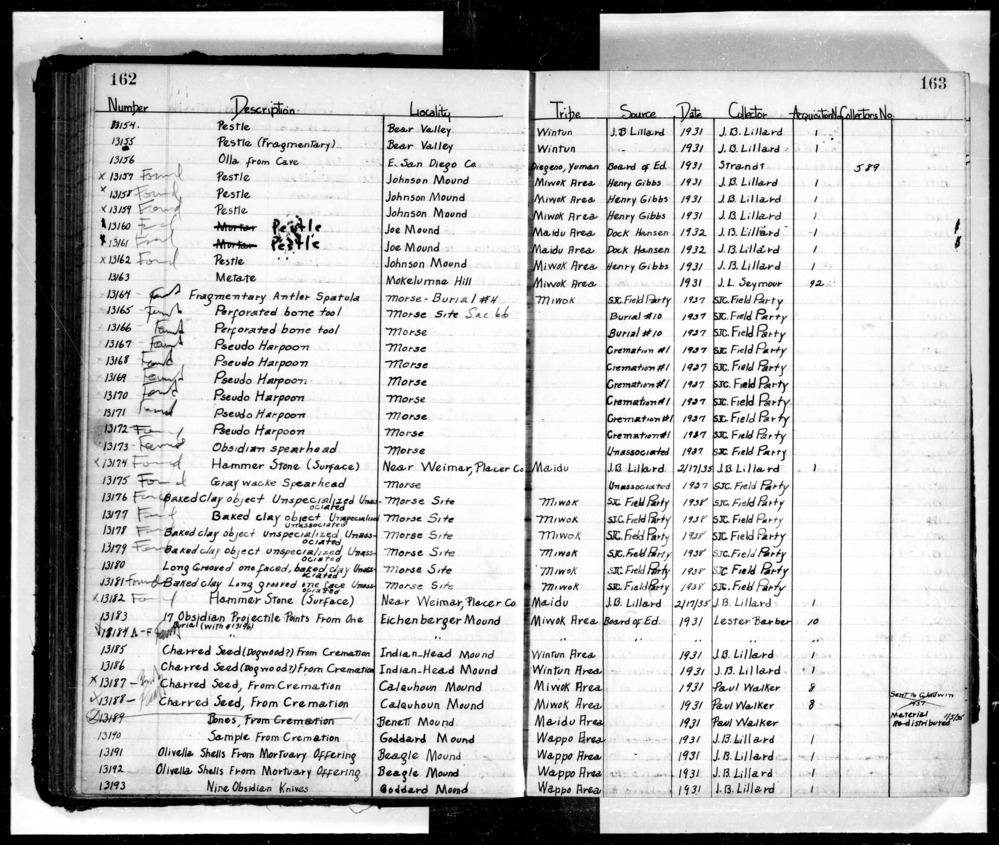 162
163
Number Description Locality Tribe Source Date Collector Acquisition No Collectors No.
13154. Pestle Bear Valley Wintun J.B Lillard 1931 J.B. Lillard 1
13155 Pestle (Fragmentary) Bear Valley Wintun 1931 J.B. Lillard 1
13156 Olla from Cave E. San Diego Co Diegeno, Yuman Board of Ed. 1931 Strandt 589
x 13157 Found Pestle Johnson Mound Miwok Area Henry Gibbs 1931 J.B. Lillard 1
x 13158 Found Pestle Johnson Mound Miwok Area Henry Gibbs 1931 J.B. Lillard 1
x 13159 Found Pestle Johnson Mound Miwok Area Henry Gibbs 1931 J.B. Lillard 1
13160 Found Mortar Pestle Joe Mound Maidu Area Dock Hansen 1932 J.B. Lillard 1
13161 Found Mortar Pestle Joe Mound Maidu Area Dock Hansen 1932 J.B. Lillard 1
x 13162 Found Pestle Johnson Mound Miwok Area Henry Gibbs 1931 J.B. Lillard 1
13163 Metate Mokelumne Hill Miwok Area 1931 J.L. Seymour 92
13164 Found Fragmentary Antler Spatula Morse - Burial #4 Miwok SJC. Field Party 1937 SJC. Field Party
13165 Found Perforated bone tool Morse Site Sac 66 Burial #10 1937 SJC. Field Party
13166 Found Perforated bone tool Morse Burial #10 1937 SJC. Field Party
13167 Found Pseudo Harpoon Morse Cremation #1 1937 SJC. Field Party
13168 Found Pseudo Harpoon Morse Cremation #1 1937 SJC. Field Party
13169 Found Pseudo Harpoon Morse Cremation #1 1937 SJC. Field Party
13170 Found Pseudo Harpoon Morse Cremation #1 1937 SJC. Field Party
13171 Found Pseudo Harpoon Morse Cremation #1 1937 SJC. Field Party
13172 Found Pseudo Harpoon Morse Cremation #1 1937 SJC. Field Party
13173 Found Obsidian spearhead Morse Unassociated 1937 SJC. Field Party
x 13174 Found Hammer Stone (Surface) Near Weimar, Placer Co Maidu J.B. Lillard 2/17/35 J.B. Lillard 1
13175 Found Graywacke Spearhead Morse Unassociated 1937 SJC. Field Party
13176 Found Baked clay object Unspecialized Unassociated Morse Site Miwok SJC. Field Party 1938 SJC. Field Party
13177 Found Baked clay object Unspecialized Unassociated Morse Site Miwok SJC. Field Party 1938 SJC. Field Party
13178 Found Baked clay object unspecialized Unassociated Morse Site Miwok SJC. Field Party 1938 SJC. Field Party
13179 Found Baked clay object unspecialized Unassociated Morse Site Miwok SJC. Field Party 1938 SJC. Field Party
13180 Long Grooved one faced, baked clay Unassociated Morse Site Miwok SJC. Field Party 1938 SJC. Field Party
13181 Found Baked clay Long grooved one face Unassociated Morse Site Miwok SJC. Field Party 1938 SJC. Field Party
x 13182 Found Hammer Stone (Surface) Near Weimar, Placer Co Maidu J.B. Lillard 2/17/35 J.B. Lillard 1
13183 17 Obsidian Projectile Points From One Eichenberger Mound Miwok Area Board of Ed. 1931 Lester Barber 10
13184 A-F Burial (with #13196) " " " " " " "
13185 Charred Seed (Dogwood?) From Cremation Indian-Head Mound Wintun Area 1931 J.B. Lillard 1
13186 Charred Seed (Dogwood?) From Cremation Indian-Head Mound Wintun Area 1931 J.B. Lillard 1
x 13187 - Found Charred Seed, From Cremation Calquhoun Mound Miwok Area 1931 Paul Walker 8
13188 - Found Charred Seed, From Cremation Calquhoun Mound Miwok Area 1931 Paul Walker 8 Sent to Gladwin 1937
13189 Bones, From Cremation Benett Mound Maidu Area 1931 Paul Walker Material Re-distributed
13190 Sample From Cremation Goddard Mound Wappo Area 1931 J.B. Lillard 1
13191 Olivella Shells From Mortuary Offering Beagle Mound Wappo Area 1931 J.B. Lillard 1
13192 Olivella Shells From Mortuary Offering Beagle Mound Wappo Area 1931 J.B. Lillard 1
13193 Nine Obsidian Knives Goddard Mound Wappo Area 1931 J.B. Lillard 1